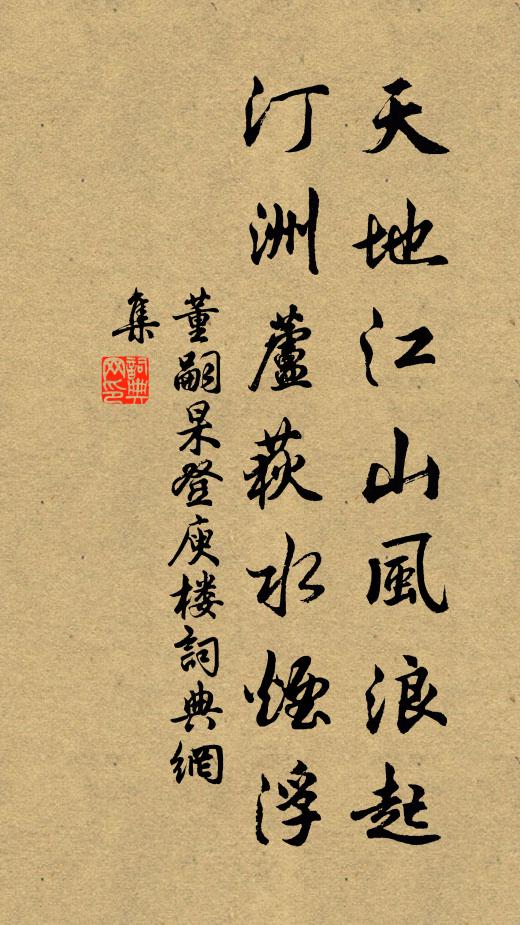 天地江山風浪起
汀洲蘆萩水煙浮
董嗣杲登庾楼詞典網
集
詞典
网印